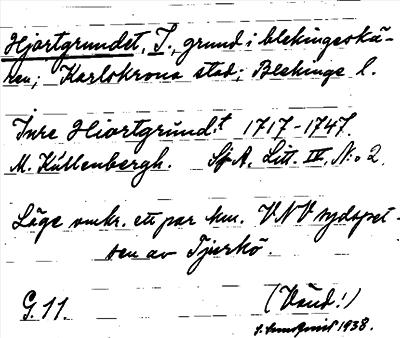 Hjortgrundet, I., grund i blekingeskä-
ren; Karlskrona stad; Blekinge l.
Inre Hiortgrund.t 1717-1747.
M. Küllenbergh. SjA, Litt. IV, N:o 2.
Läge omkr. ett par km. VNV sydspet-
sen av Tjurkö.
G. 11. (Vänd!)
1938.